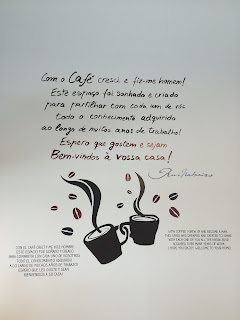 Com o Café cresci e fiz-me homem!
Este espaço foi sonhado e criado
para partilhar com cada um de vós
todo o conhecimento adquirido
ao longo de muitos anos de trabalho!
Espero que gostem e sejam
Bem-vindos à vossa casa!
CON EL CAFÉ CRECÍ Y ME HICE HOMBRE!
ESTE ESPACIO FUE SOÑADO Y CREADO
PARA COMPARTIR CON CADA UNO DE VOSOTROS
TODO EL CONOCIMIENTO ADQUIRIDO
A LO LARGO DE MUCHOS AÑOS DE TRABAJO!
ESPERO QUE LES GUSTE Y SEAN
BIENVENIDOS A SU CASA!
WITH COFFEE I GREW UP AND BECAME A MAN!
THIS SPACE WAS DREAMED AND CREATED TO SHARE
WITH EACH ONE OF YOU ALL THE KNOWLEDGE
ACQUIRED OVER MANY YEARS OF WORK!
I HOPE YOU ENJOY! WELCOME TO YOUR HOME!